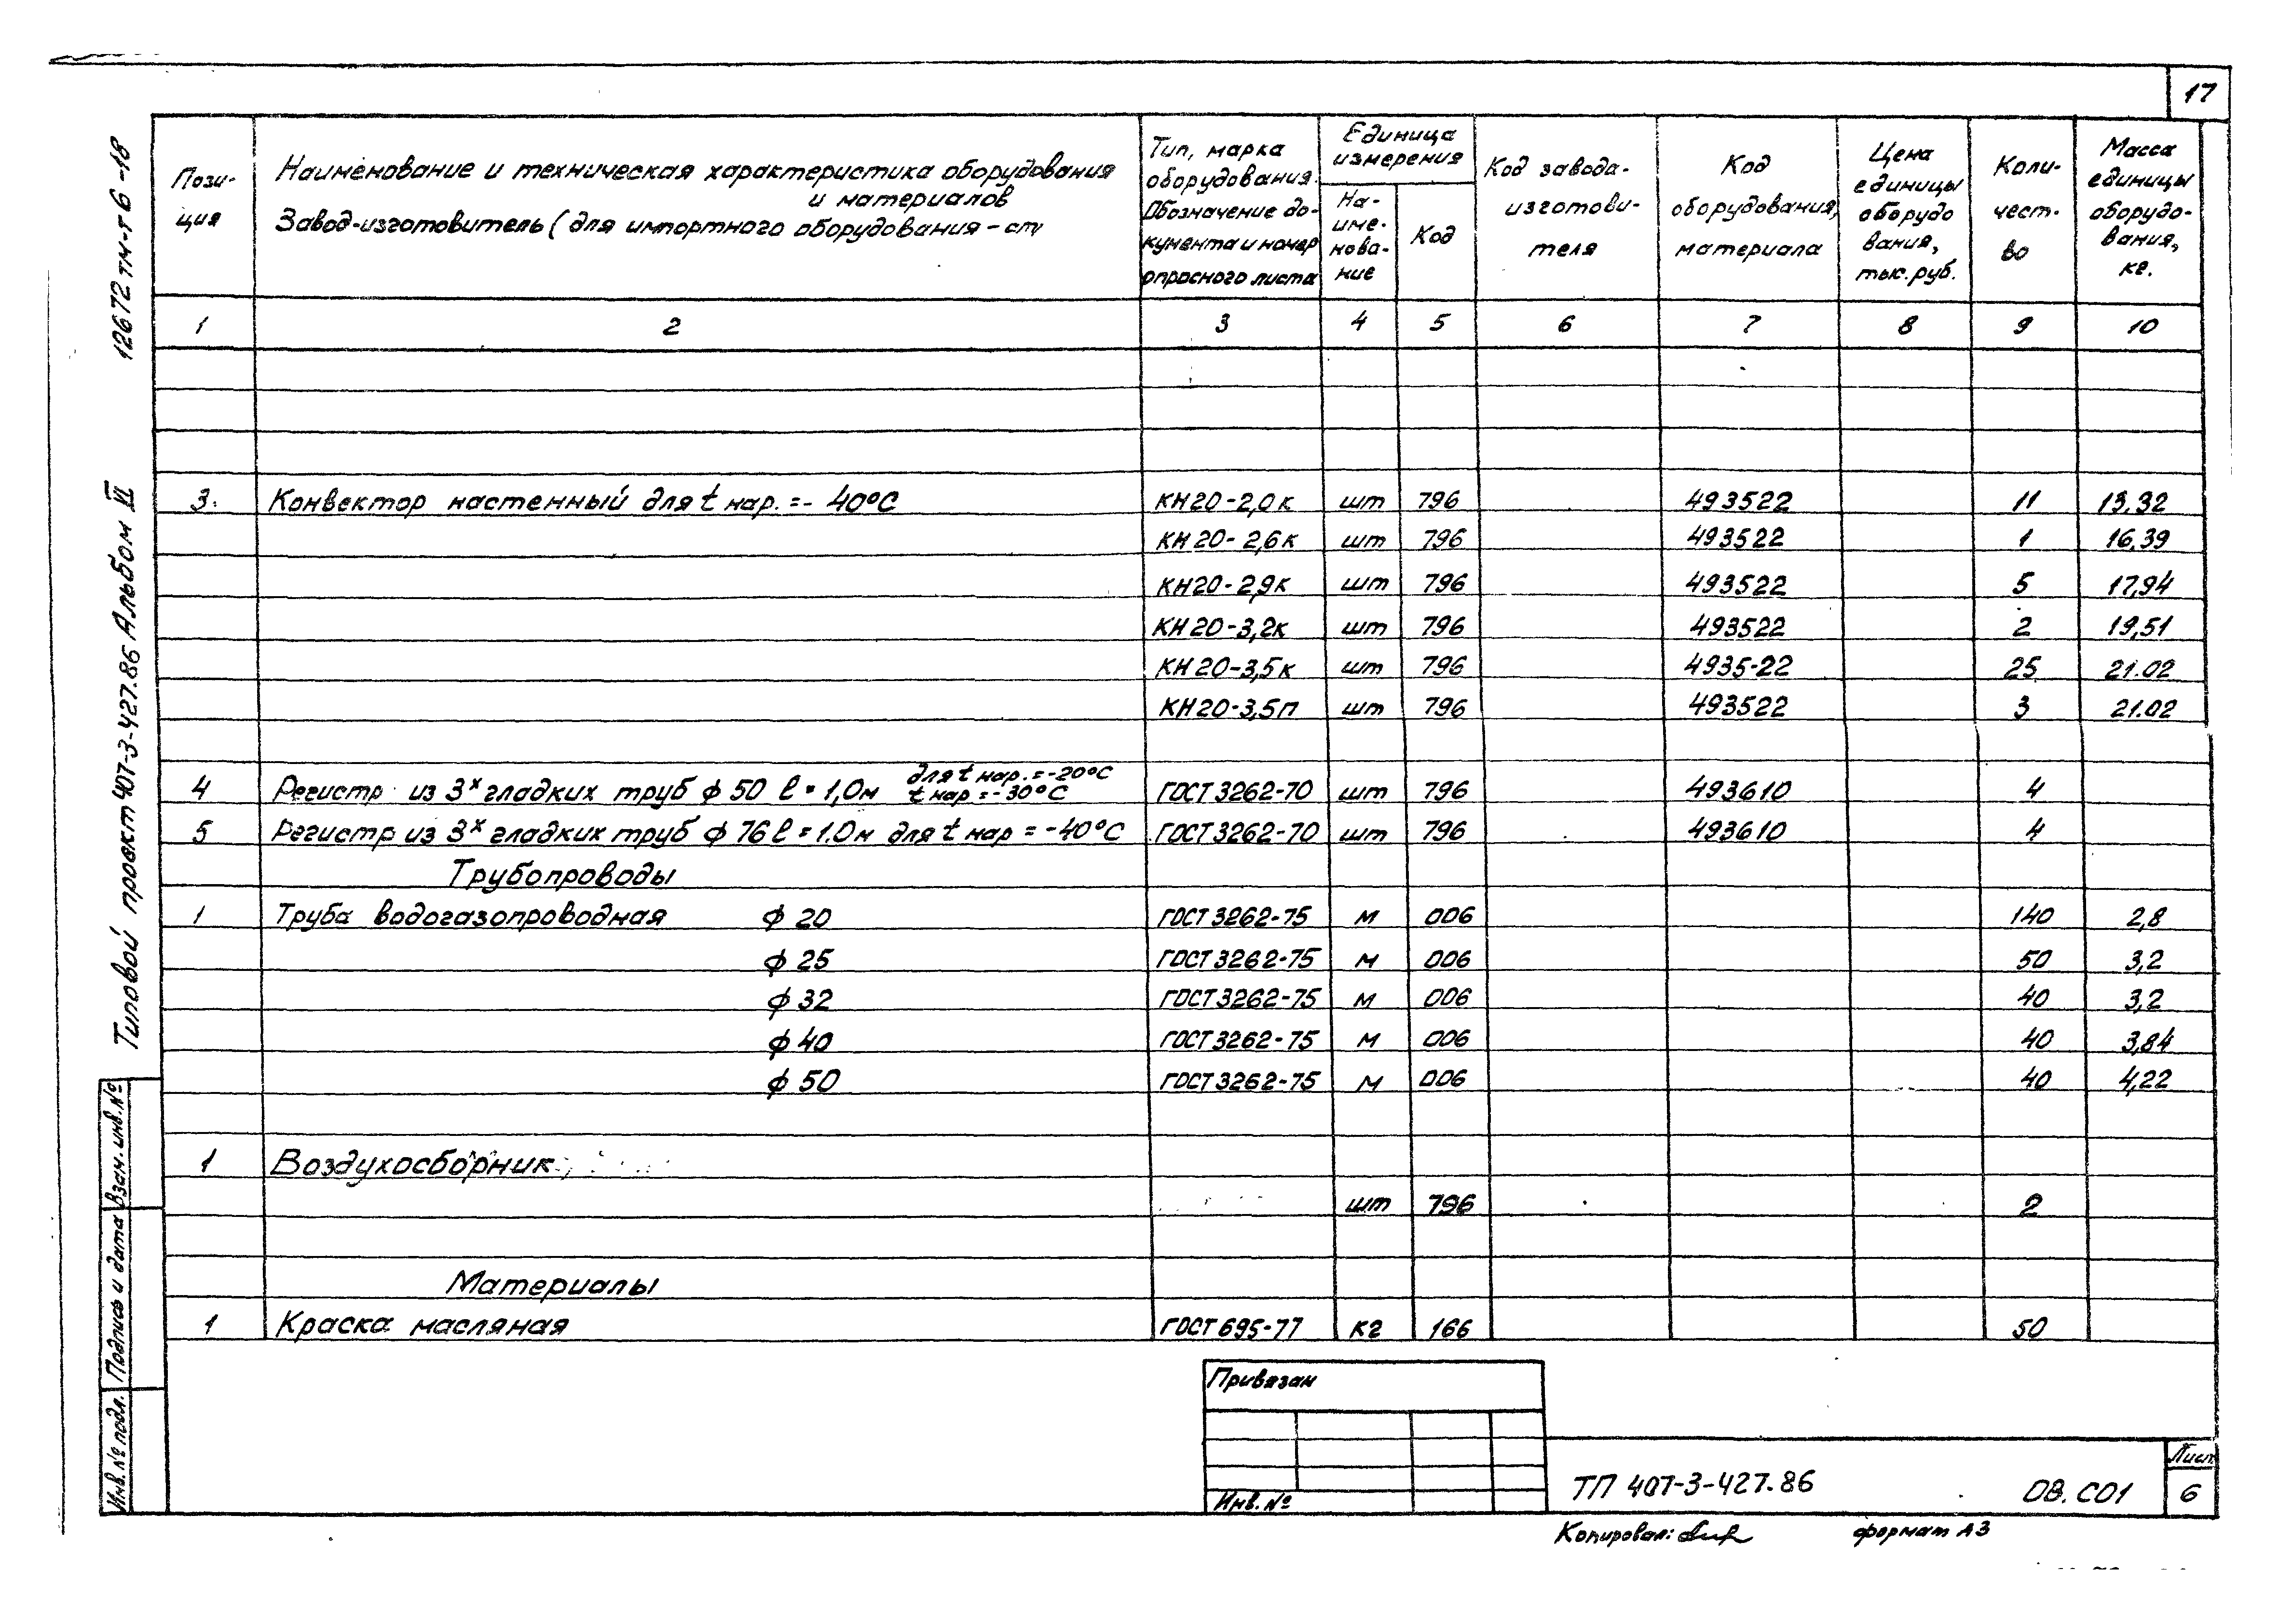 17
12672 тм-т 6 -18
Типовой проект 407-3-427.86 Альбом VI
Взам. инв. №
Подпись и дата
Инв. № подл.
Пози-
ция
Наименование и техническая характеристика оборудования
и материалов
Завод-изготовитель (для импортного оборудования - ст
Тип, марка
оборудования.
Обозначение до-
кумента и номер
опросного листа
Единица
измерения
На-
име-
нова-
ние
Код
Код завода-
изготови-
теля
Код
оборудования,
материала
Цена
единицы
оборудо
вания,
тыс. руб.
Коли-
чест-
во
Масса
единицы
оборудо-
вания,
кг.
1 2 3 4 5 6 7 8 9 10
3. Конвектор настенный для t нар. =- 40°С КН20-2,0к шт 796 493522 11 13,32
КН20-2,6к шт 796 493522 1 16,39
КН20-2,9к шт 796 493522 5 17,94
КН20-3,2к шт 796 493522 2 19,51
КН20-3,5к шт 796 4935-22 25 21.02
КН20-3,5п шт 796 493522 3 21.02
для t нар. =-20°С
4 Регистр из 3х гладких труб ф 50 l = 1,0м t нар =-30°С ГОСТ 3262-70 шт 796 493610 4
5 Регистр из 3х гладких труб ф 76 l = 1.0м для t нар = -40°С ГОСТ 3262-70 шт 796 493610 4
Трубопроводы
1 Труба водогазопроводная ф 20 ГОСТ 3262-75 м 006 140 2,8
ф 25 ГОСТ 3262-75 м 006 50 3,2
ф 32 ГОСТ 3262-75 м 006 40 3,2
ф 40 ГОСТ 3262-75 м 006 40 3,84
ф 50 ГОСТ 3262-75 м 006 40 4,22
1 Воздухосборник
шт 796 2
Материалы
1 Краска масляная ГОСТ 695-77 кг 166 50
Привязан
Инв. №
ТП 407-3-427.86 ОВ. СО1
Лист
6
Копировал:
формат А3